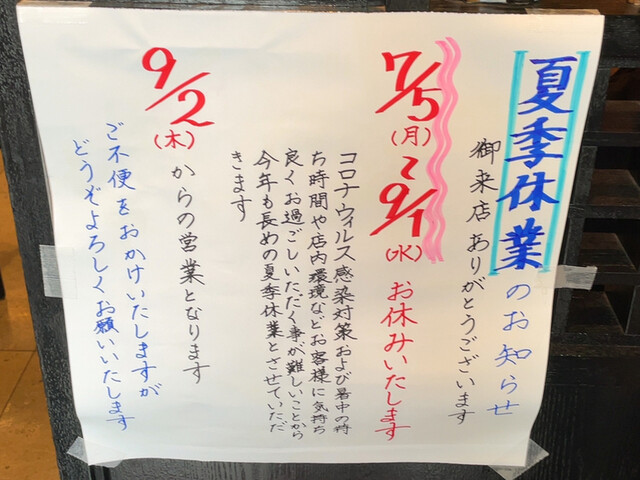 夏季休業のお知らせ
御来店ありがとうございます
7/5(月)〜9/1(水)お休みいたします
コロナウィルス感染対策および暑中の待
ち時間や店内環境などお客様に気持ち
良くお過ごしいただく事が難しいことから
今年も長めの夏季休業とさせていただ
きます
9/2(木)からの営業となります
ご不便をおかけいたしますが
どうぞよろしくお願いいたします